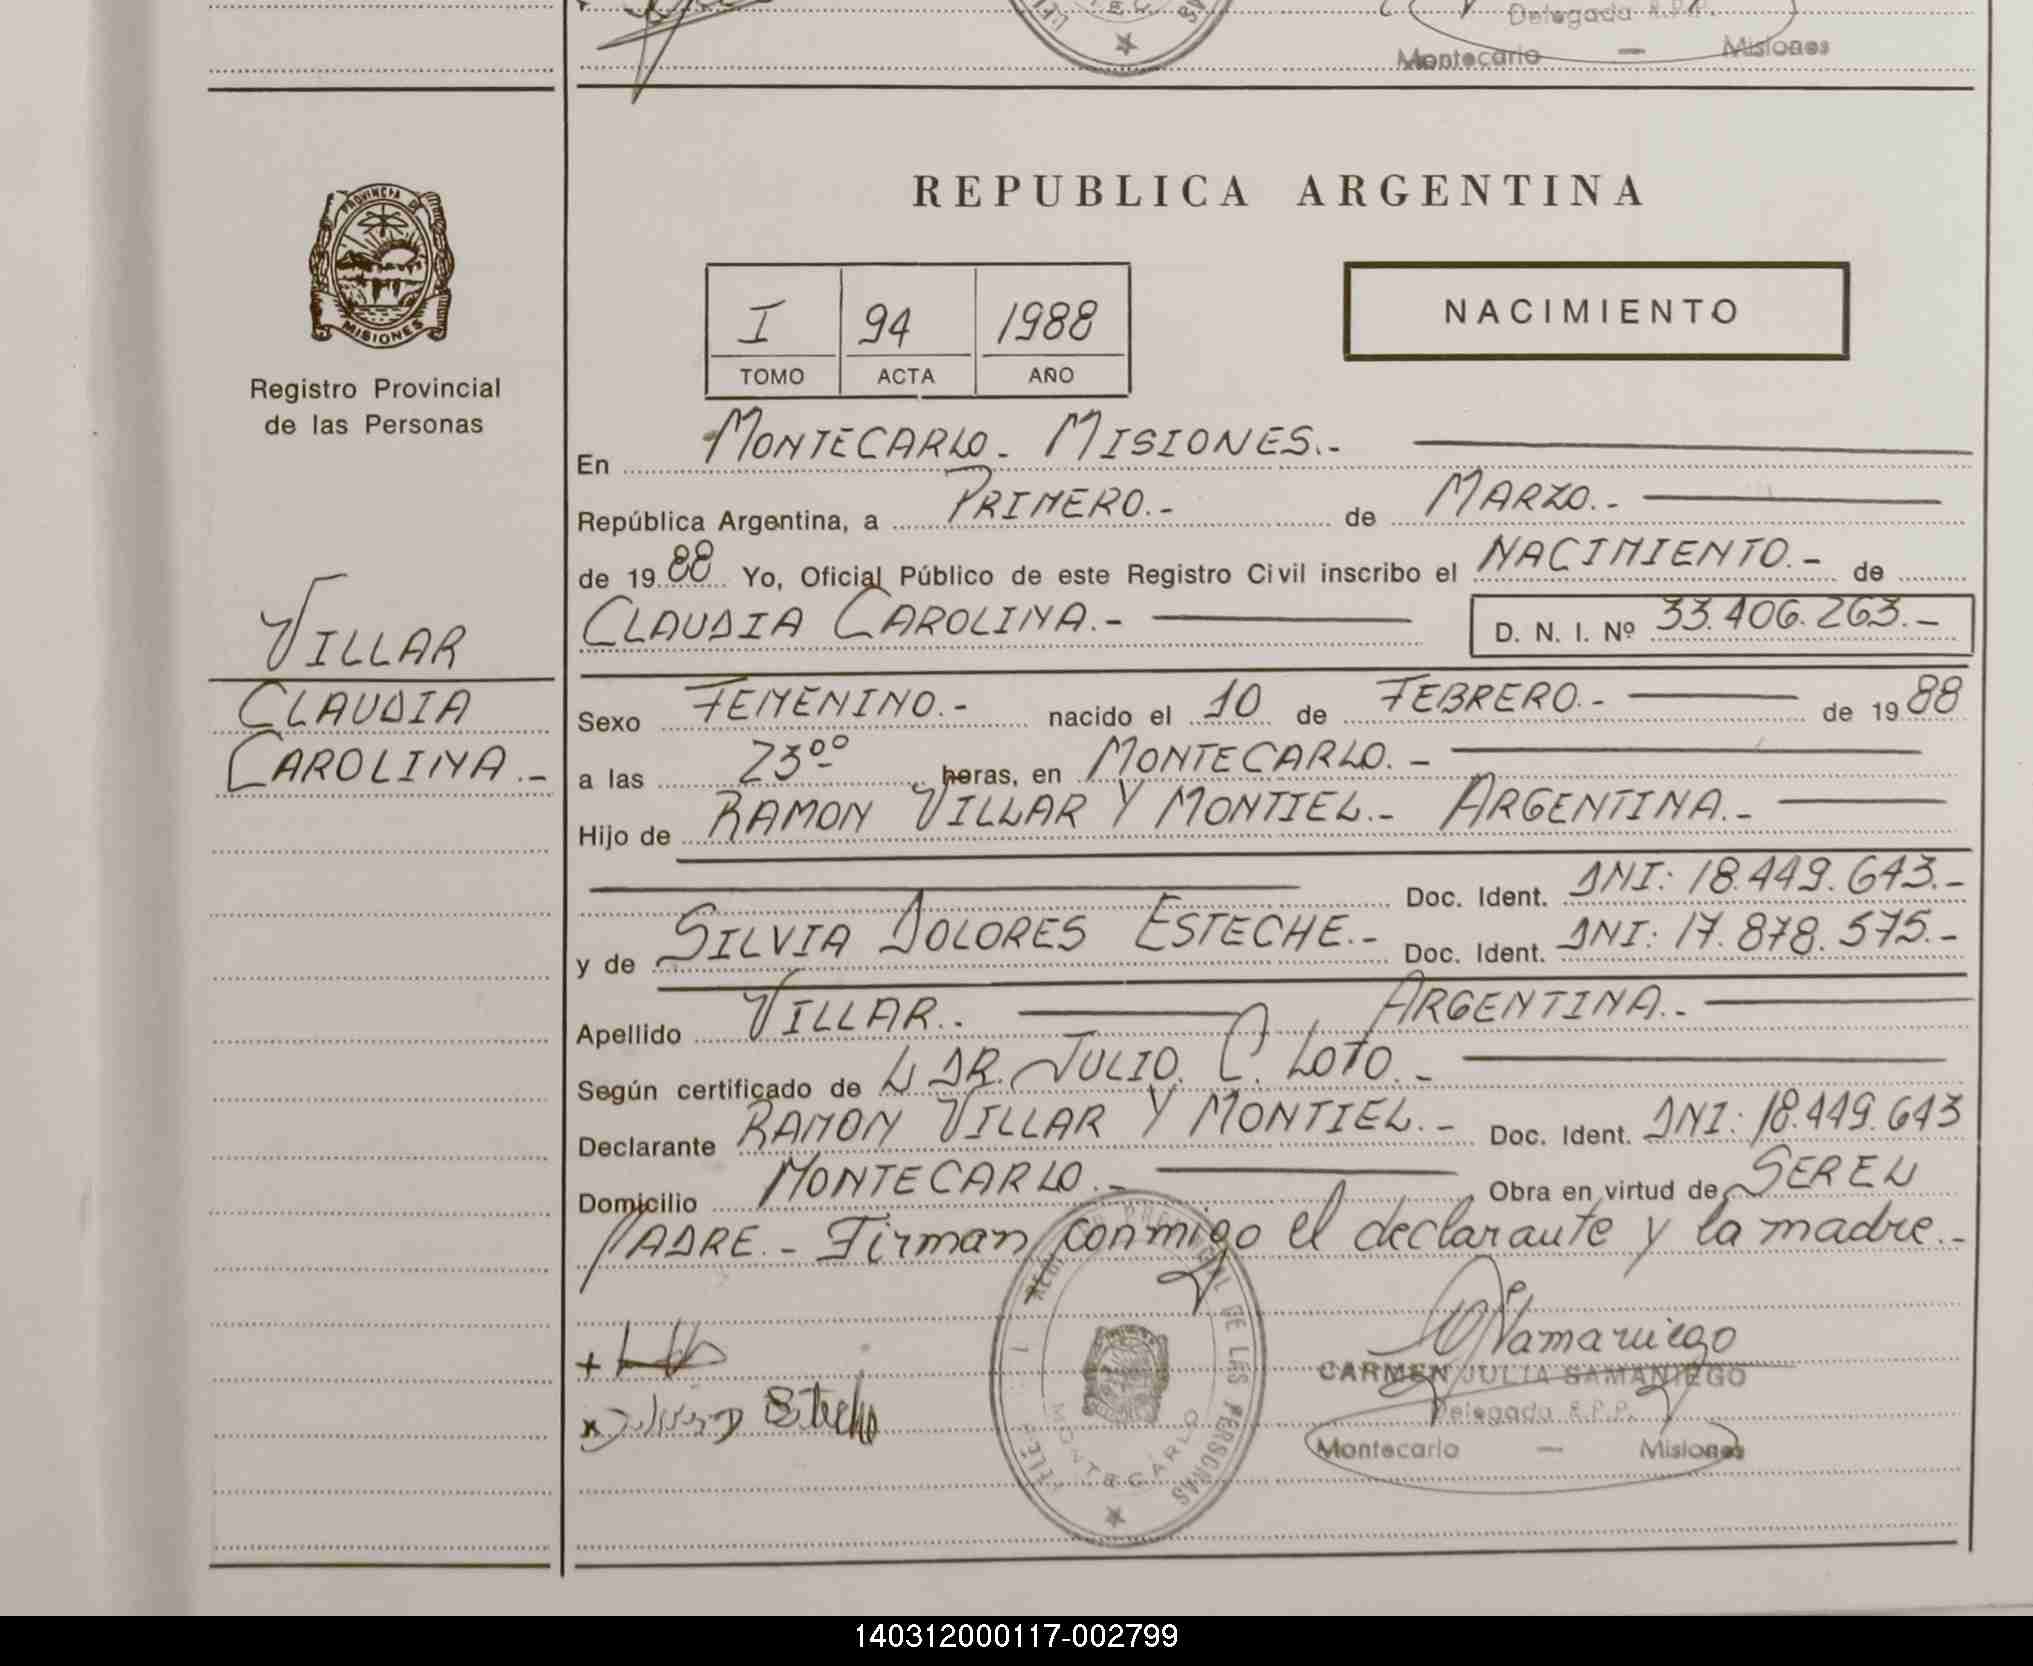 Delegada R.P.P.
Montecarlo — Misiones
PROVINCIA DE
MISIONES
Registro Provincial
de las Personas
VILLAR
CLAUDIA
CAROLINA.-
REPUBLICA ARGENTINA
I 94 1988
TOMO ACTA AÑO
NACIMIENTO
En MONTECARLO - MISIONES.-
República Argentina, a PRIMERO.- de MARZO.-
de 1988 Yo, Oficial Público de este Registro Civil inscribo el NACIMIENTO.- de
CLAUDIA CAROLINA.- D. N. I. Nº 33.406.263.-
Sexo FEMENINO.- nacido el 10 de FEBRERO.- de 1988
a las 23ºº horas, en MONTECARLO.-
Hijo de RAMON VILLAR Y MONTIEL.- ARGENTINA.-
Doc. Ident. DNI: 18.449.643.-
y de SILVIA DOLORES ESTECHE.- Doc. Ident. DNI: 17.878.575.-
Apellido VILLAR.- ARGENTINA.-
Según certificado de L DR. JULIO. C. LOTO.-
Declarante RAMON VILLAR Y MONTIEL.- Doc. Ident. DNI: 18.449.643
Domicilio MONTECARLO.- Obra en virtud de SER EL
PADRE.- Firman conmigo el declarante y la madre.-
REGISTRO PROVINCIAL DE LAS PERSONAS
MONTECARLO
Samaniego
CARMEN JULIA SAMANIEGO
Delegada R.P.P.
Montecarlo — Misiones
140312000117-002799